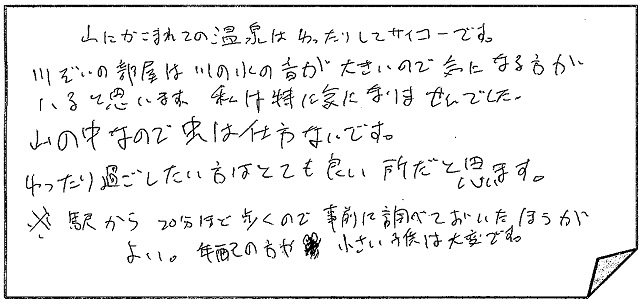 山にかこまれての温泉はゆったりしてサイコーです。
川ぞいの部屋は川の水の音が大きいので気になる方が
いると思います。私は特に気になりませんでした。
山の中なので虫は仕方ないです。
ゆったり過ごしたい方はとても良い所だと思います。
※駅から20分ほど歩くので事前に調べておいたほうが
よい。年配の方や小さい子供は大変です。